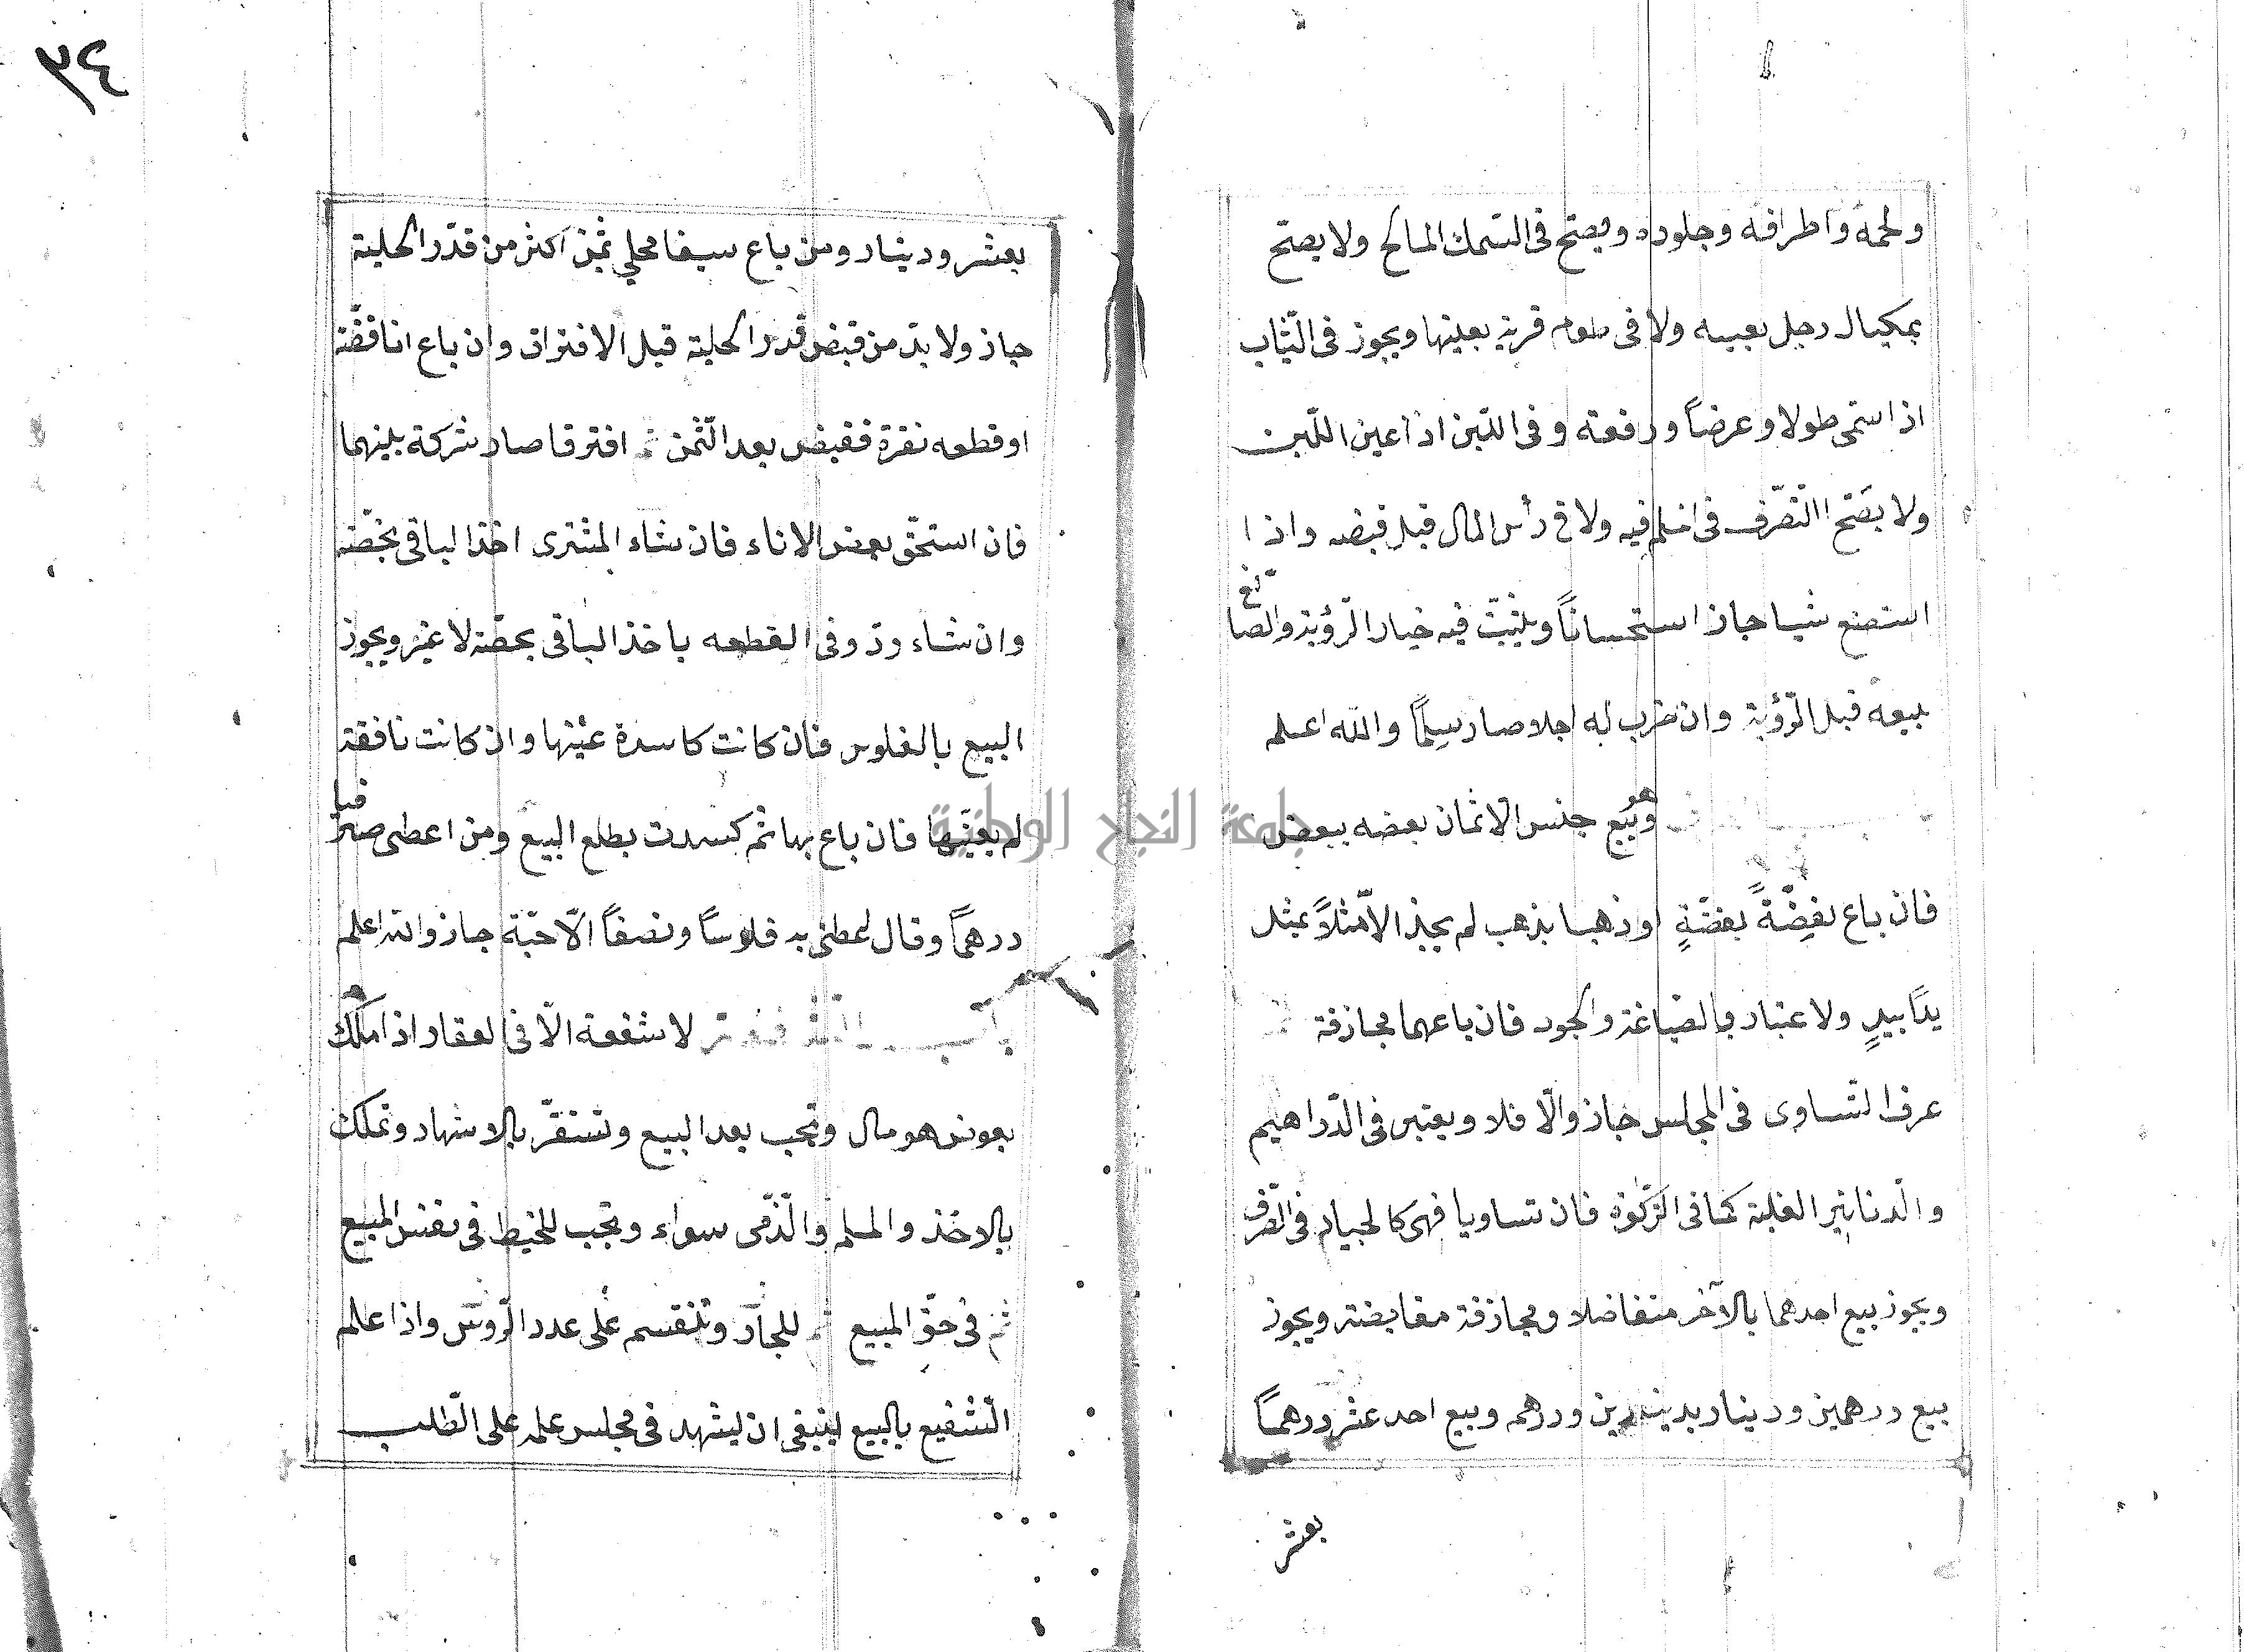 ولحمه واطرافه وجلوده ويصح فى السّمك المالح ولا يصحّ
بمكيال رجل بعينه ولا فى طعام قرية بعينها ويجوز فى الثّياب
اذا سمّى طولا وعرضاً ورفعة وفى اللّبن اذا عين اللّبن
ولا يصَحّ التّصّرف فى المسلم فيه ولا فى رأس المال قبل قبضه واذا ا
استصنع شيا جاز استحساناً ويثبت فيه خيار الرّؤية والصّا
نع
بيعه قبل الرّؤية وان ضرب له اجلا صار سلماً والله اعلم
هو
وَبيع جنس الاثمان بعضه ببعض
فان باع بفضّةً بفضّةٍ اوذهبا بذهب لم يجز الاّ مثلاً بمثل
يداً بيدٍ ولا عتبار بالصّياغة والجود فان باعهما مجازفة
عرف التّساوى فى المجلس جاز والّا فلا ويعتبر فى الدّراهيم
والّدنانير الغلبة كما فى الزّكٰوة فان تساويا فهى كالجياد فى الصّرف
ويجوز بيع احدهما بالآخر متفاضلا ومجازفة مقابضة ويجوز
بيع درهمين ودينار بدينارين ودرهم وبيع احد عشر درهماً
بعشر
٣٤
بعشر ودينار ومن باع سيفا محلي بثمن اكثر من قدر الحلية
جاز ولا بدّ من قبض قدر الحلية قبل الافتراق وان باع انا فضّة
او قطعه نقرة فقبض بعد الثّمن ثم افترقا صار شركة بينهما
فان استحّق بعض الاناء فان شاء المشترى اخذ الباقى بحصّته
وان شاء ردّ وفى القطعه ياخذ الباقى بحصّته لا غير ويجوز
البيع بالفلوس فان كانت كاسدة عيّنها وان كانت نافقة
لم يعيّنها فان باع بها ثم كسدت بطلع البيع ومن اعطى صير
فيا
درهماً وقال اعطنى به فلوسًا ونصفاً الّا حّبة جاز والله اعلم
باب الشفعة لا شفعة الّا فى العقار اذا ملك
بعوض هو مال وتجب بعد البيع وتستقرّ بالاشهاد وتملك
بالاخذ والمسلم والّذمّى سواء وتجب للخليط فى نفس المبيع
ثم فى حقّ المبيع ثم للجار وتنقسم على عدد الرّوس واذا علم
الشّفيع بالبيع ينبغى ان يشهد فى مجلس علمه على الّطلب
جامعة النجاح الوطنية